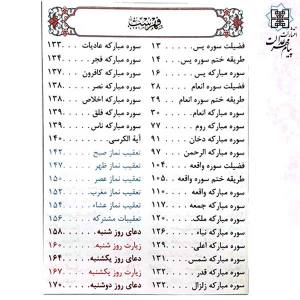 فهرست
انتشارات
پیام عدالت
فضیلت سوره یس . . . . . ۱۳
طریقه ختم سوره یس . . . ۱۴
سوره مبارکه یس . . . . . ۱۶
فضیلت سوره انعام . . . . ۲۸
طریقه ختم سوره انعام . . ۲۹
سوره مبارکه انعام . . . . ۳۰
سوره مبارکه روم . . . . . ۷۷
سوره مبارکه دخان . . . . ۹۱
سوره مبارکه الرحمن . . . ۹۷
فضیلت سوره واقعه . . . ۱۰۴
طریقه ختم سوره واقعه . ۱۰۵
سوره مبارکه واقعه . . . ۱۱۰
سوره مبارکه جمعه . . . ۱۱۷
سوره مبارکه ملک . . . . ۱۲۰
سوره مبارکه نباء . . . . ۱۲۶
سوره مبارکه اعلی . . . . ۱۲۹
سوره مبارکه شمس . . . ۱۳۱
سوره مبارکه قدر . . . . ۱۳۲
سوره مبارکه زلزال . . . ۱۳۲
سوره مبارکه عادیات . . . ۱۳۳
سوره مبارکه فجر . . . . ۱۳۴
سوره مبارکه کافرون . . . ۱۳۷
سوره مبارکه نصر . . . . ۱۳۸
سوره مبارکه اخلاص . . . ۱۳۸
سوره مبارکه فلق . . . . ۱۳۹
سوره مبارکه ناس . . . . ۱۳۹
آیة الکرسی . . . . . . . ۱۴۰
تعقیب نماز صبح . . . . ۱۴۲
تعقیب نماز ظهر . . . . ۱۴۷
تعقیب نماز عصر . . . . ۱۵۰
تعقیب نماز مغرب . . . . ۱۵۲
تعقیب نماز عشاء . . . . ۱۵۴
تعقیبات مشترکه . . . . ۱۵۶
دعای روز شنبه . . . . . ۱۵۸
زیارت روز شنبه . . . . . ۱۶۰
دعای روز یکشنبه . . . . ۱۶۴
زیارت روز یکشنبه . . . . ۱۶۷
دعای روز دوشنبه . . . . ۱۷۰